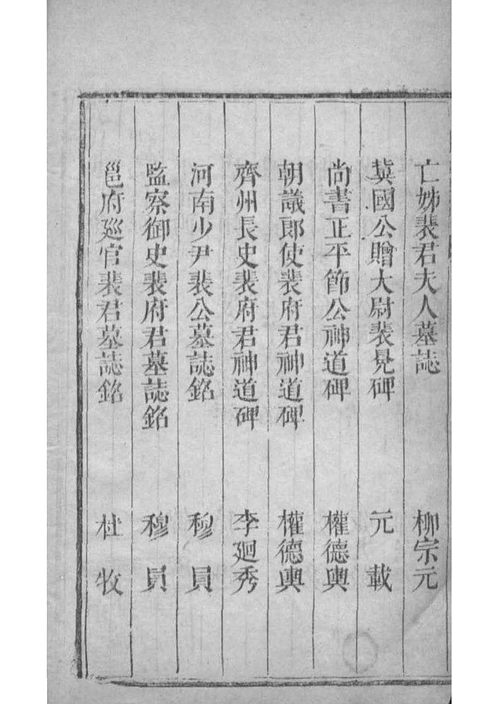 亡姊裴君夫人墓誌 柳宗元
冀國公贈大尉裴冕碑 元載
尚書正平節公神道碑 權德輿
朝議郎使裴府君神道碑 權德輿
齊州長史裴府君神道碑 李廻秀
河南少尹裴公墓誌銘 穆員
監察御史裴府君墓誌銘 穆員
邕府廵官裴君墓誌銘 杜牧